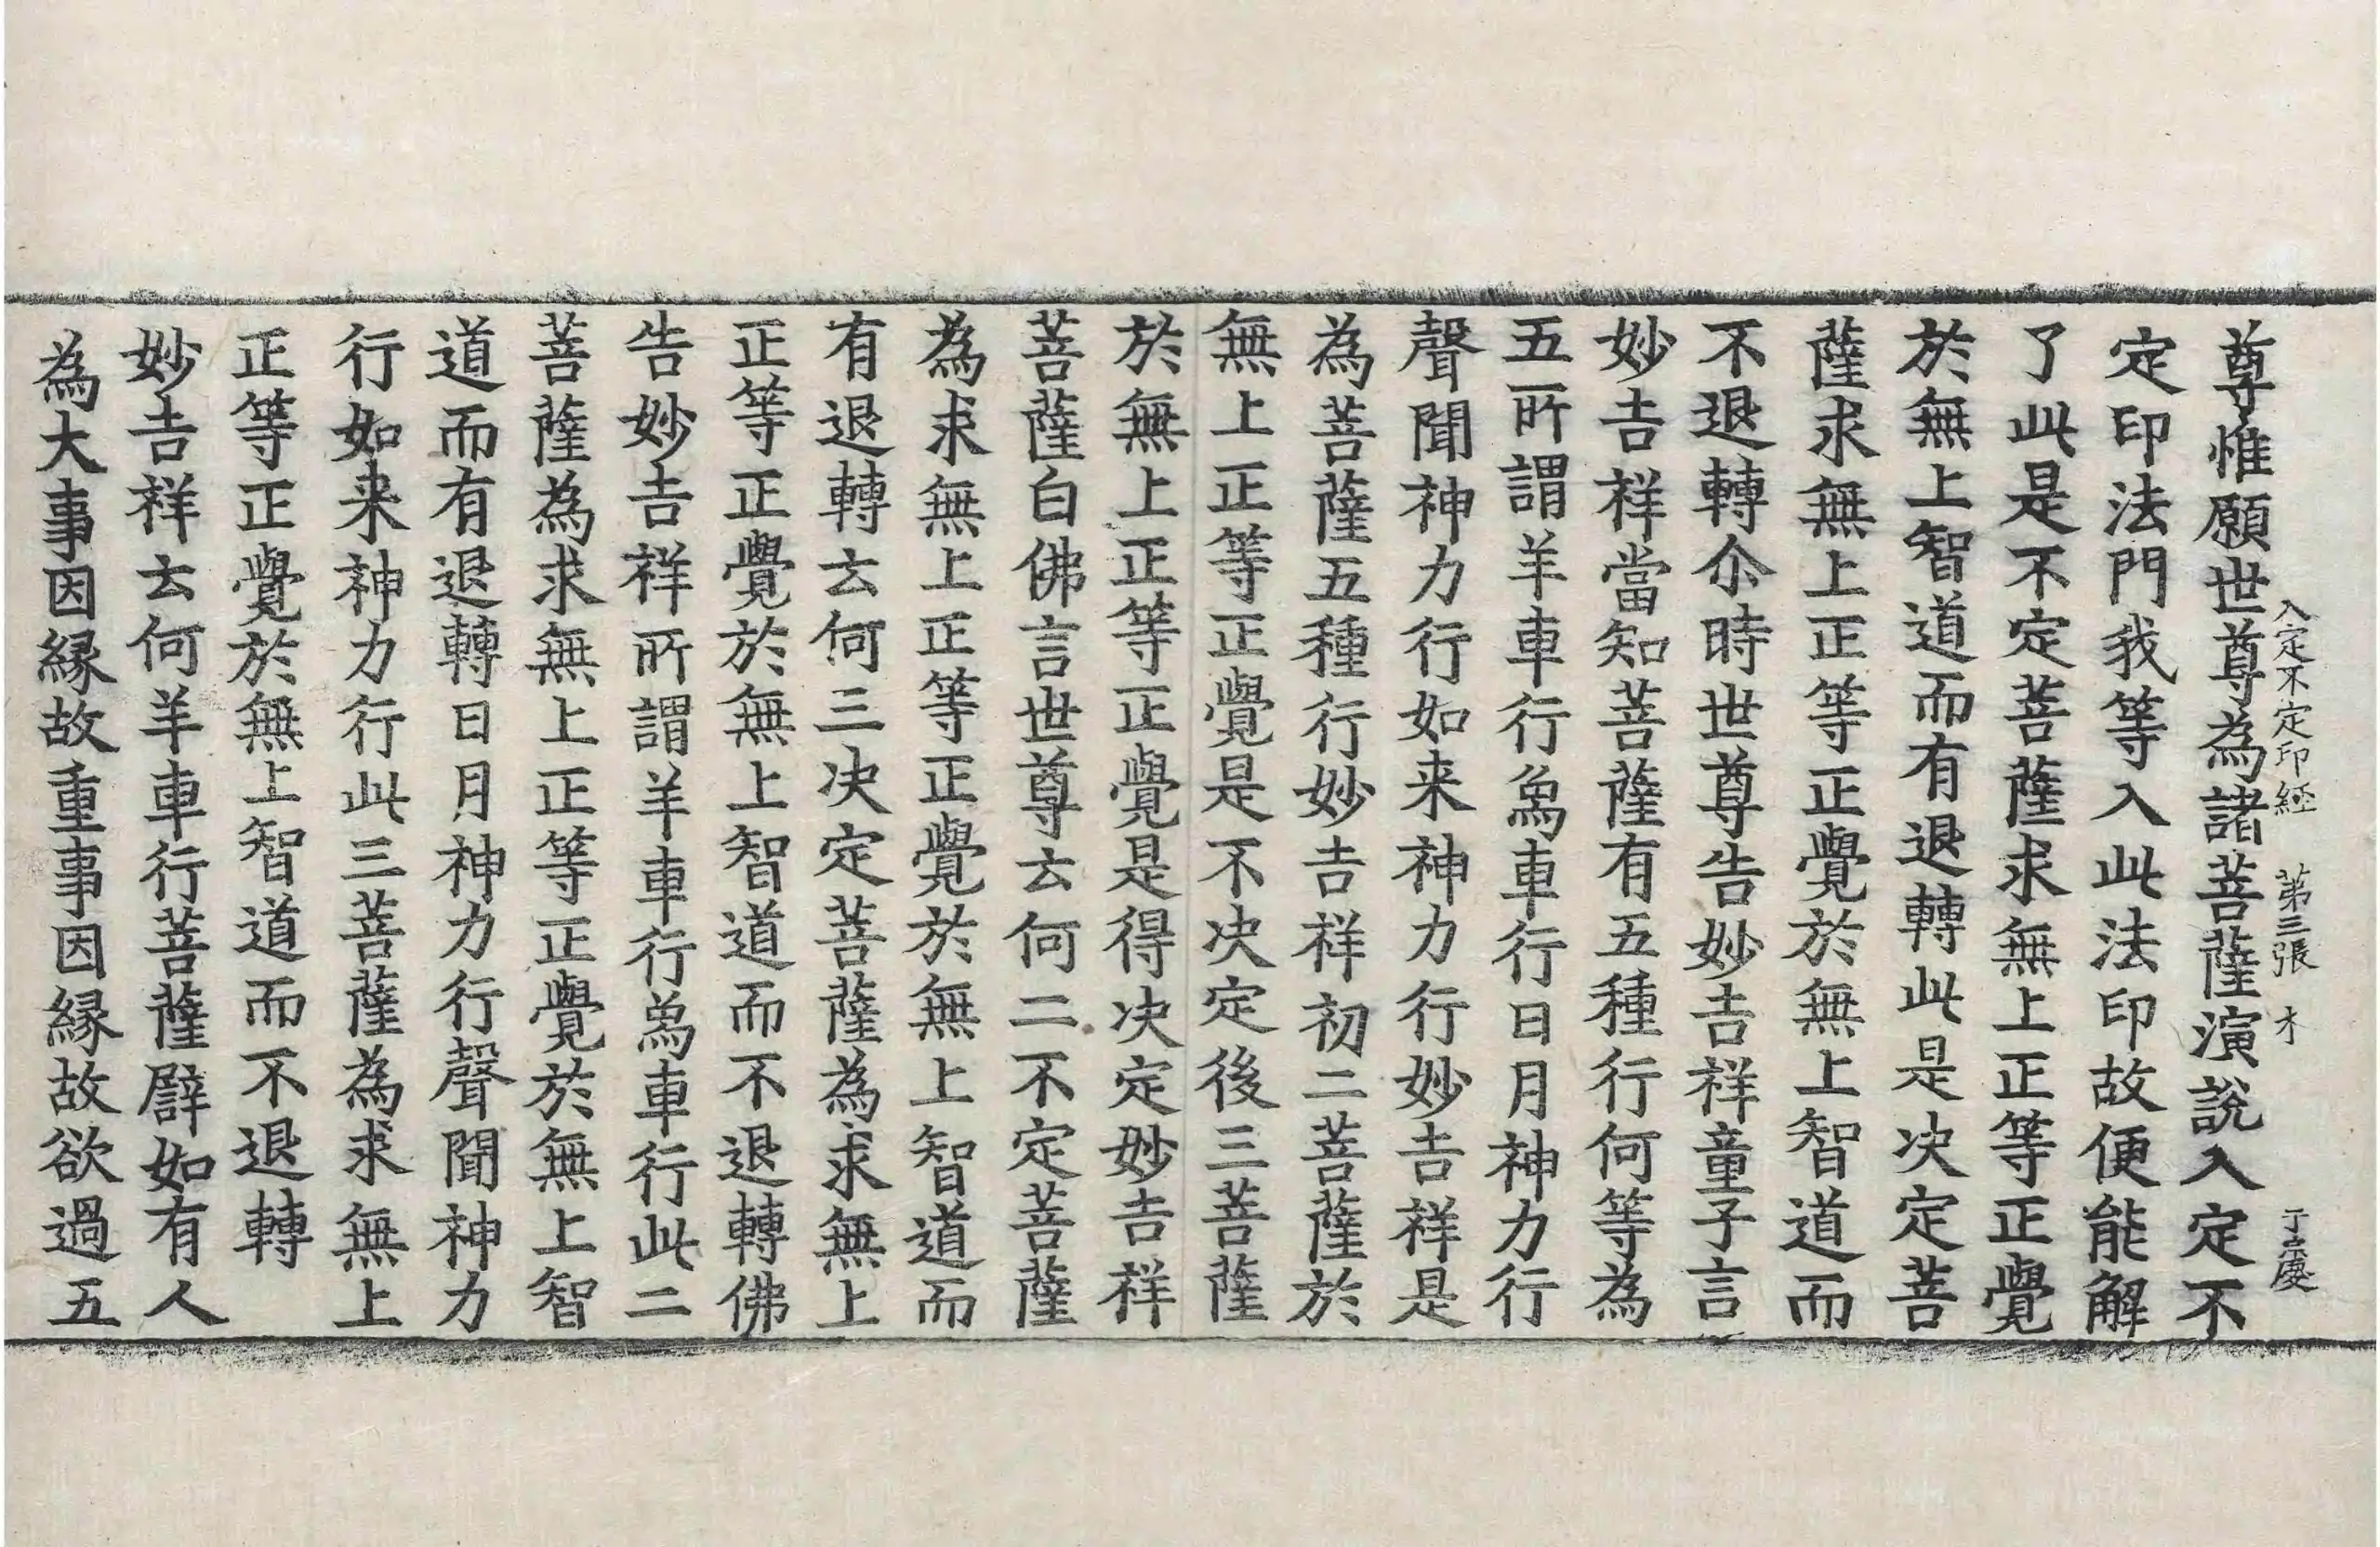 入定不定印經 第三張 才 于慶
尊惟願世尊為諸菩薩演說入定不
定印法門我等入此法印故便能解
了此是不定菩薩求無上正等正覺
於無上智道而有退轉此是決定菩
薩求無上正等正覺於無上智道而
不退轉尒時世尊告妙吉祥童子言
妙吉祥當知菩薩有五種行何等為
五所謂羊車行象車行日月神力行
聲聞神力行如来神力行妙吉祥是
為菩薩五種行妙吉祥初二菩薩於
無上正等正覺是不决定後三菩薩
於無上正等正覺是得决定妙吉祥
菩薩白佛言世尊云何二不定菩薩
為求無上正等正覺於無上智道而
有退轉云何三决定菩薩為求無上
正等正覺於無上智道而不退轉佛
告妙吉祥所謂羊車行象車行此二
菩薩為求無上正等正覺於無上智
道而有退轉日月神力行聲聞神力
行如来神力行此三菩薩為求無上
正等正覺於無上智道而不退轉
妙吉祥云何羊車行菩薩譬如有人
為大事因縁故重事因縁故欲過五